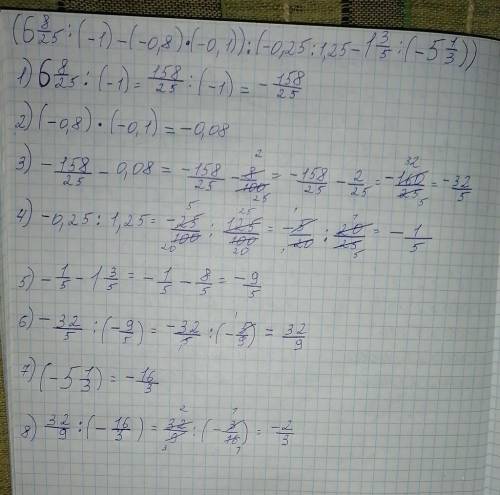 (6 8/25 : (-1) - (-0,8) · (-0,1)) : (-0,25 : 1,25 - 1 3/5 : (-5 1/3))
1) 6 8/25 : (-1) = 158/25 : (-1) = -158/25
2) (-0,8) · (-0,1) = -0,08
3) -158/25 - 0,08 = -158/25 - 8/100 = -158/25 - 2/25 = -160/25 = -32/5
4) -0,25 : 1,25 = -25/100 : 125/100 = -5/20 : 20/25 = -1/5
5) -1/5 - 1 3/5 = -1/5 - 8/5 = -9/5
6) -32/5 : (-9/5) = -32/5 : (-5/9) = 32/9
7) (-5 1/3) = -16/3
8) 32/9 : (-16/3) = 32/9 : (-3/16) = -2/3